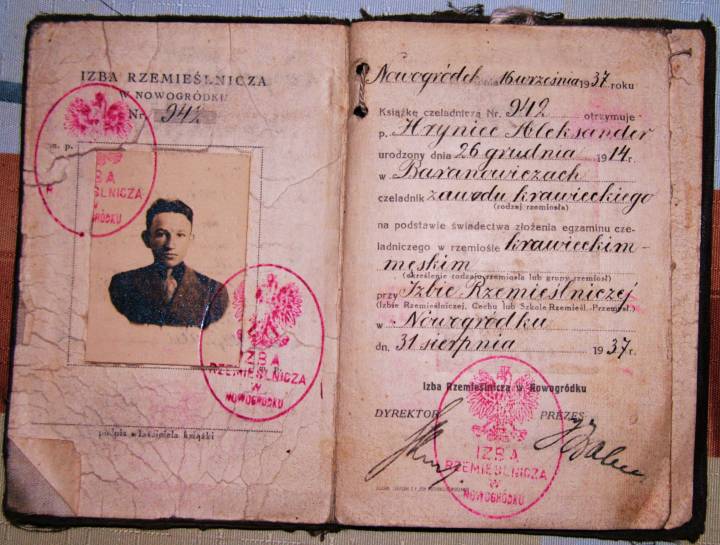 IZBA RZEMIEŚLNICZA
W NOWOGRÓDKU
Nr. 942
m. p.
IZBA
RZEMIEŚLNICZA
W
NOWOGRÓDKU
IZBA
RZEMIEŚLNICZA
W
NOWOGRÓDKU
podpis właściciela książki
Nowogródek dnia 16 września 1937 roku
Książkę czeladniczą Nr. 942 otrzymuje
p. Hryniec Aleksander
urodzony dnia 26 grudnia 1914 r.
w Baranowiczach
czeladnik zawodu krawieckiego
(rodzaj rzemiosła)
na podstawie świadectwa złożenia egzaminu cze-
ladniczego w rzemiośle krawieckim-
męskim
(określenie rodzaju rzemiosła lub grupy rzemiosł)
przy Izbie Rzemieślniczej
(Izbie Rzemieślniczej, Cechu lub Szkole Rzemieśl.-Przemysł.)
w Nowogródku
dn. 31 sierpnia 1937 r.
Izba Rzemieślnicza w Nowogródku
DYREKTOR PREZES
IZBA
RZEMIEŚLNICZA
W
NOWOGRÓDKU